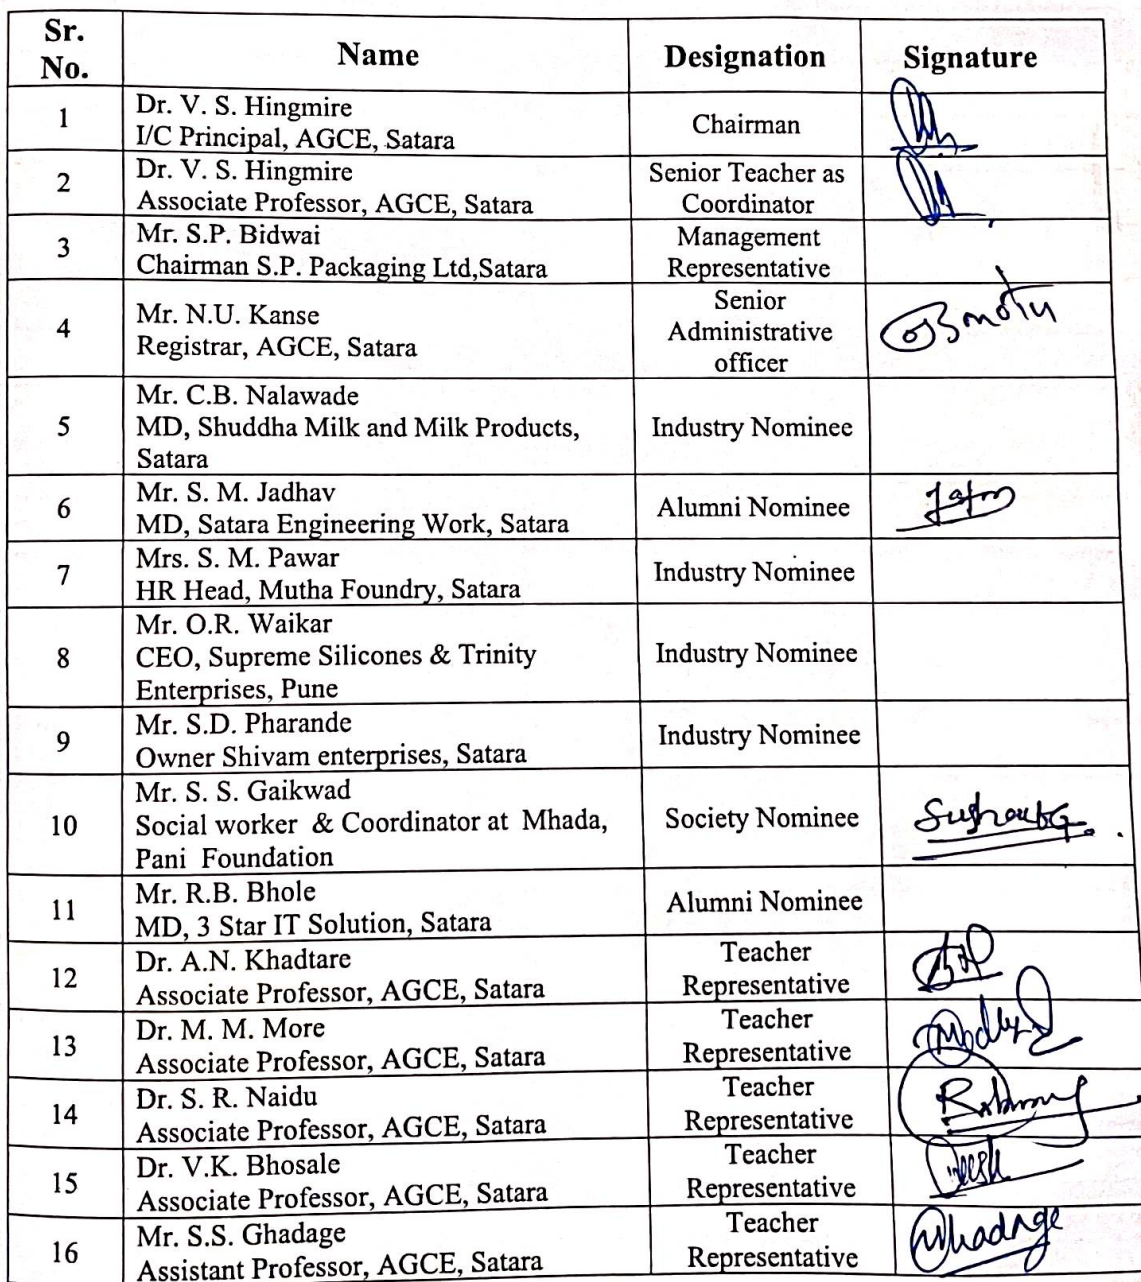 Sr.
No.
Name
Designation
Signature
1
Dr. V. S. Hingmire
I/C Principal, AGCE, Satara
Chairman
2
Dr. V. S. Hingmire
Associate Professor, AGCE, Satara
Senior Teacher as
Coordinator
3
Mr. S.P. Bidwai
Chairman S.P. Packaging Ltd,Satara
Management
Representative
4
Mr. N.U. Kanse
Registrar, AGCE, Satara
Senior
Administrative
officer
5
Mr. C.B. Nalawade
MD, Shuddha Milk and Milk Products,
Satara
Industry Nominee
6
Mr. S. M. Jadhav
MD, Satara Engineering Work, Satara
Alumni Nominee
7
Mrs. S. M. Pawar
HR Head, Mutha Foundry, Satara
Industry Nominee
8
Mr. O.R. Waikar
CEO, Supreme Silicones & Trinity
Enterprises, Pune
Industry Nominee
9
Mr. S.D. Pharande
Owner Shivam enterprises, Satara
Industry Nominee
10
Mr. S. S. Gaikwad
Social worker & Coordinator at Mhada,
Pani Foundation
Society Nominee
11
Mr. R.B. Bhole
MD, 3 Star IT Solution, Satara
Alumni Nominee
12
Dr. A.N. Khadtare
Associate Professor, AGCE, Satara
Teacher
Representative
13
Dr. M. M. More
Associate Professor, AGCE, Satara
Teacher
Representative
14
Dr. S. R. Naidu
Associate Professor, AGCE, Satara
Teacher
Representative
15
Dr. V.K. Bhosale
Associate Professor, AGCE, Satara
Teacher
Representative
16
Mr. S.S. Ghadage
Assistant Professor, AGCE, Satara
Teacher
Representative